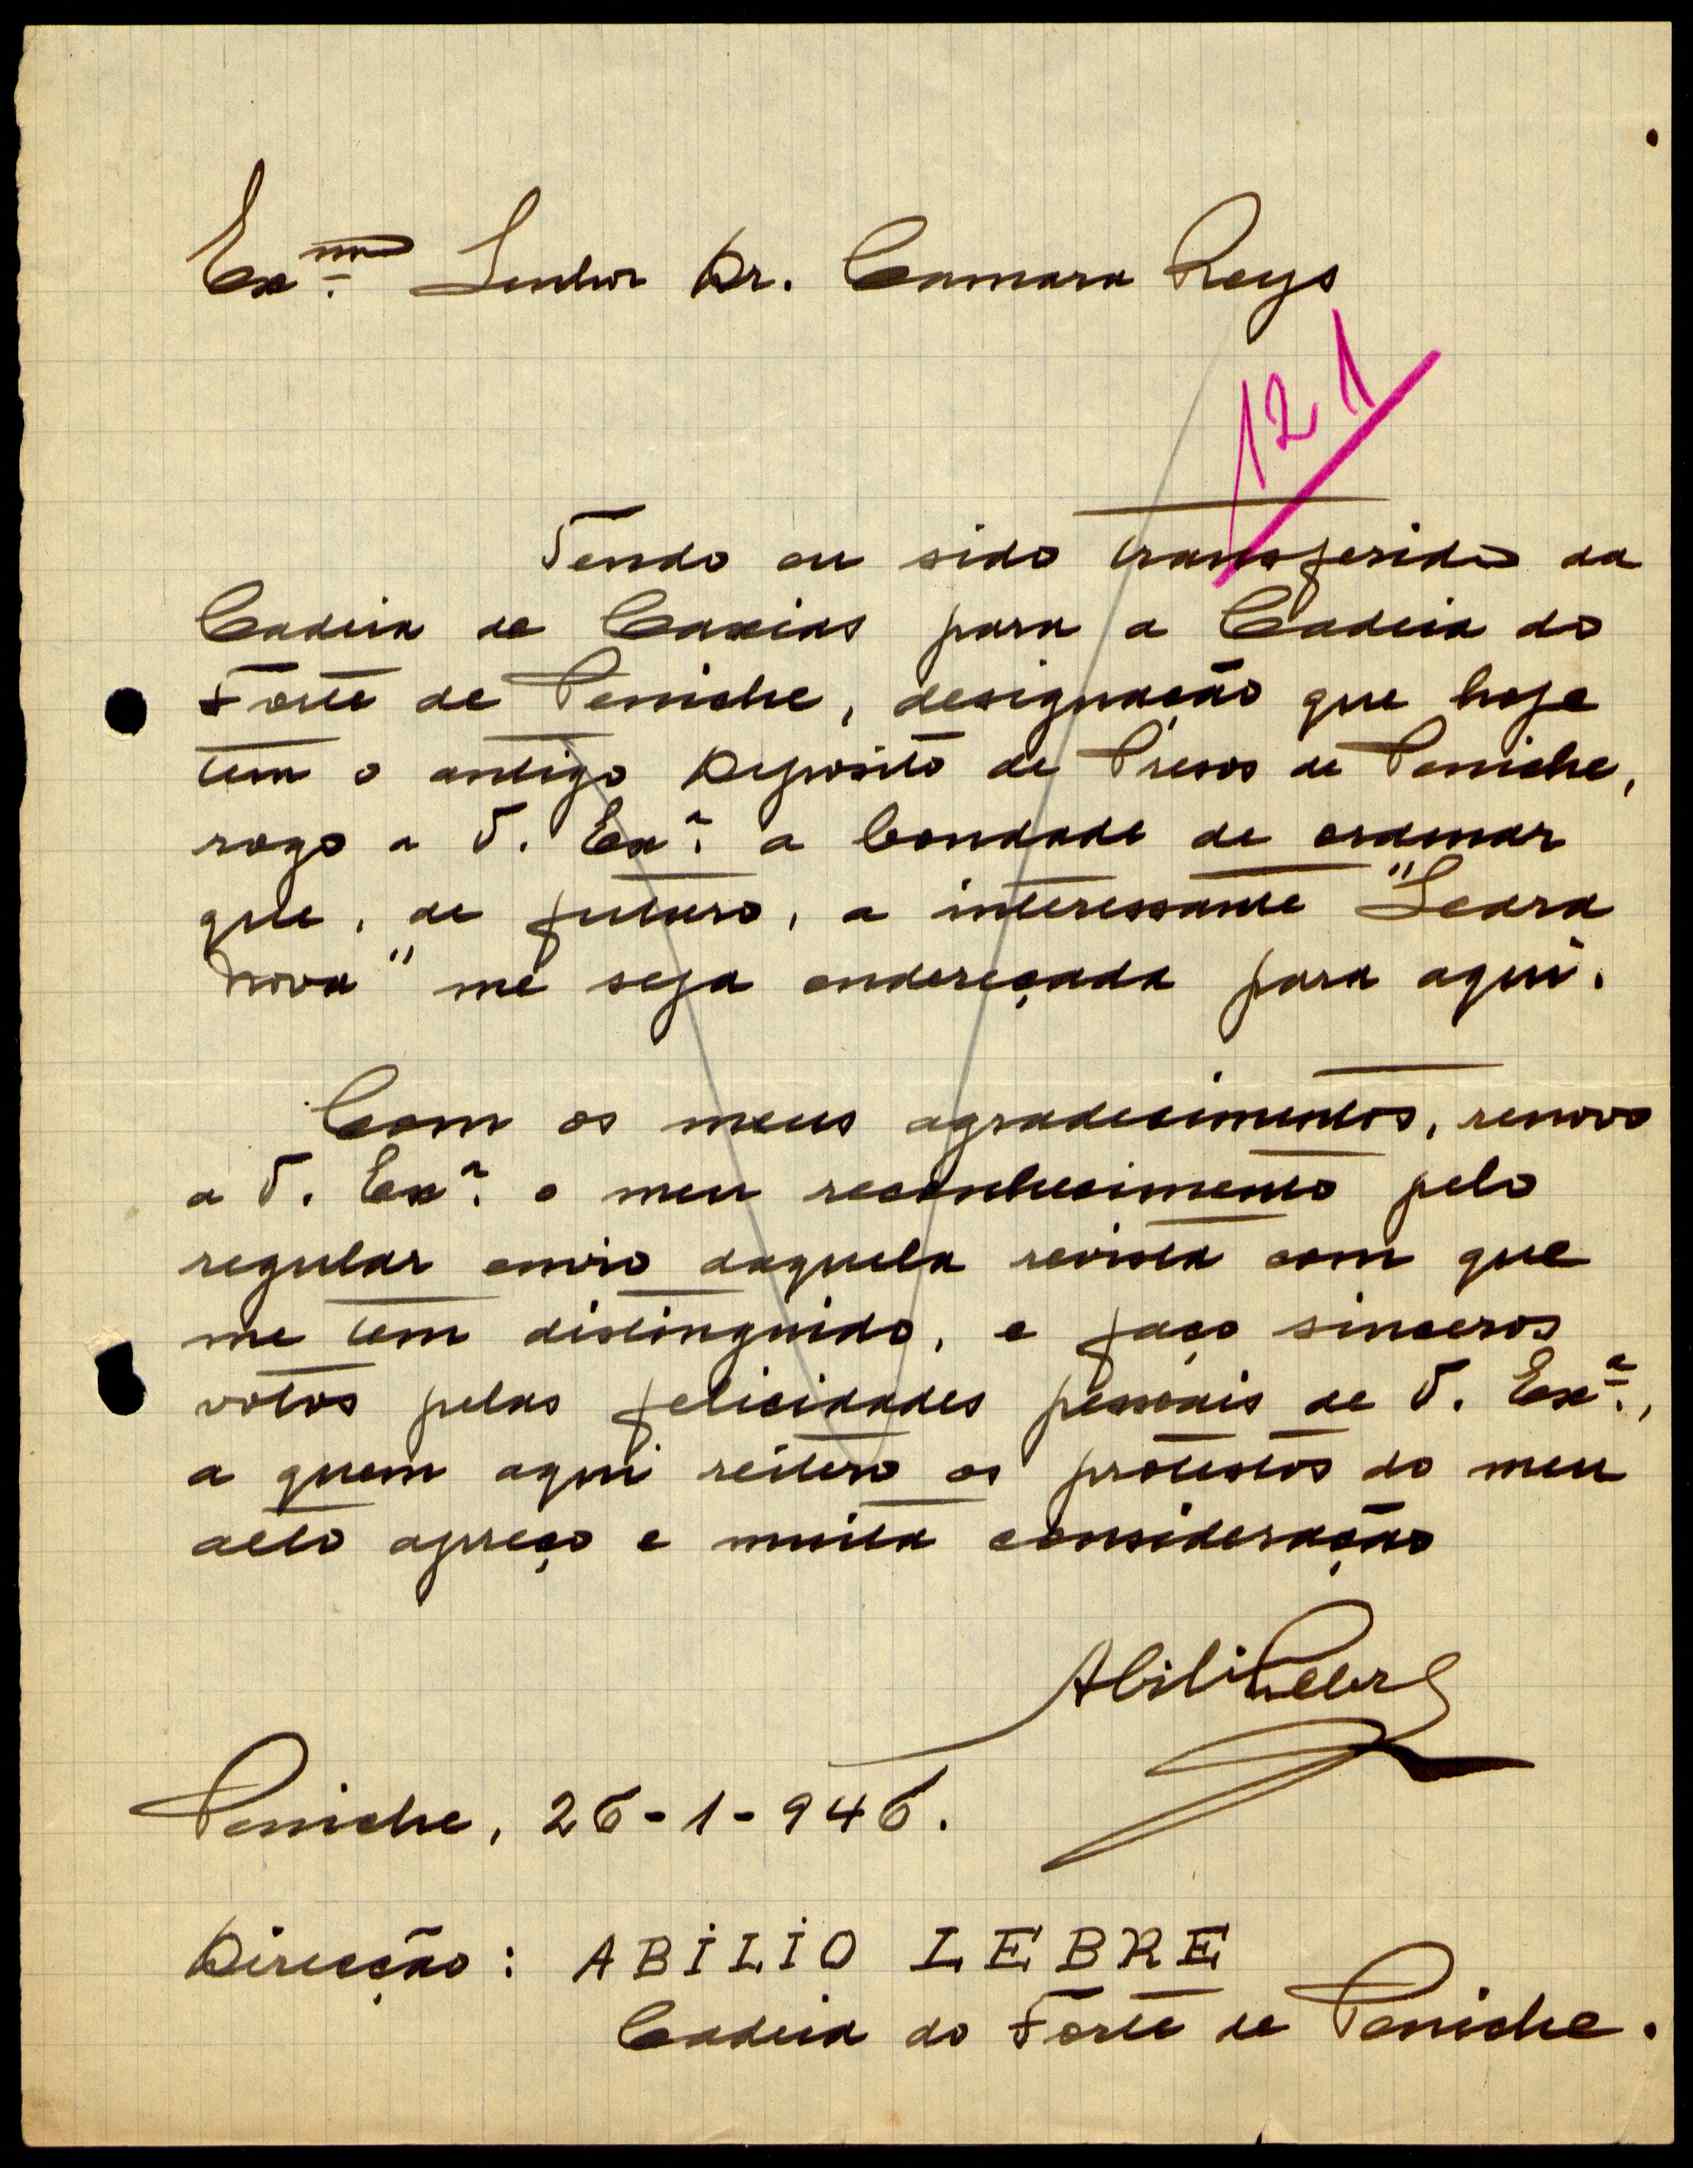 Exmo. Senhor Dr. Camara Reys
121
Tendo eu sido transferido da
Cadeia de Caxias para a Cadeia do
Forte de Peniche, designação que hoje
tem o antigo Deposito de Presos de Peniche,
rogo a V. Exa. a bondade de ordenar
que, de futuro, a interessante "Seara
Nova" me seja endereçada para aqui.
Com os meus agradecimentos, renovo
a V. Exa. o meu reconhecimento pelo
regular envio daquela revista com que
me tem distinguido, e faço sinceros
votos pelas felicidades pessoais de V. Exa.,
a quem aqui reitero os protestos do meu
alto apreço e muita consideração
Abilio Lebre
Peniche, 26-1-946.
Direcção: ABÍLIO LEBRE
Cadeia do Forte de Peniche.